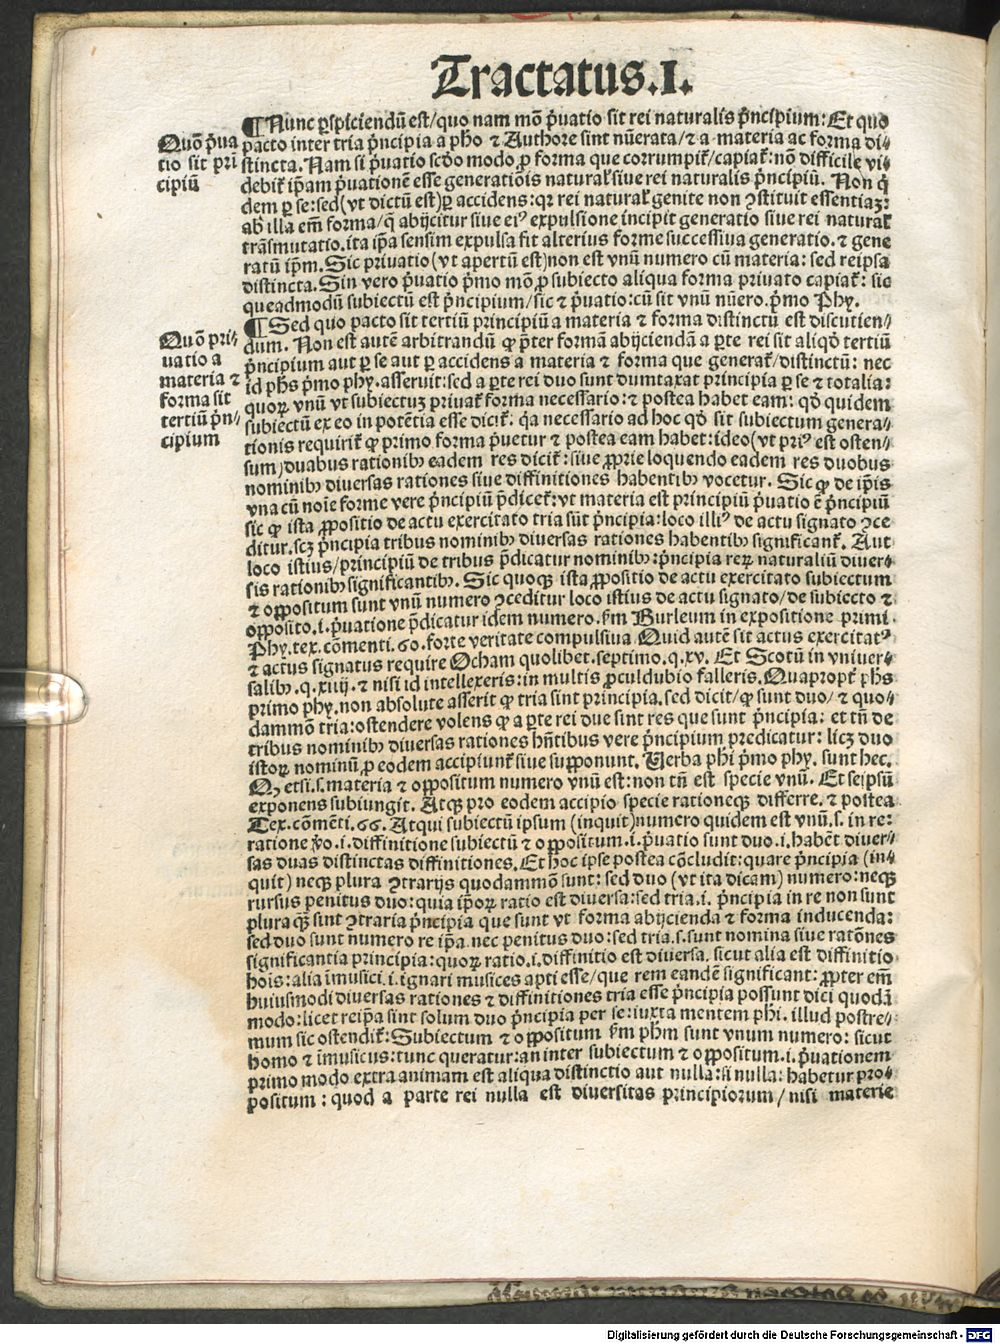 Tractatus.I.
¶Nunc ꝑspiciendū est/quo nam mō p̄uatio sit rei naturalis p̄ncipium: Et quo
Quō p̄ua
tio sit pri
cipiū
pacto inter tria p̄ncipia a pho ⁊ Authore sint nūerata/⁊ a materia ac forma di⸗
stincta. Nam si p̄uatio scd̄o modo ꝓ forma que corrumpit̄/capiat̄: nō difficile vi⸗
debit̄ ip̄am p̄uationē esse generatiōis natural̄ siue rei naturalis p̄ncipiū. Non q̇
dem ꝑ se: sed (vt dictū est) ꝑ accidens: qꝛ rei natural̄ genite non ꝯstituit essentiaꝫ:
ab illa em̄ forma/q̄ abijcitur siue eiꝰ expulsione incipit generatio siue rei natural̄
trāsmutatio. ita ip̄a sensim expulsa fit alterius forme successiua generatio. ⁊ gene
ratū ip̄m. Sic priuatio (vt apertū est) non est vnū numero cū materia: sed reipsa
distincta. Sin vero p̄uatio p̄mo mō ꝓ subiecto aliqua forma priuato capiat̄: sic
queadmodū subiectū est p̄ncipium/sic ⁊ p̄uatio: cū sit vnū nūero. p̄mo Phy.
Quō pri⸗
uatio a
materia ⁊
forma sit
tertiū p̄n⸗
cipium
¶Sed quo pacto sit tertiū principiū a materia ⁊ forma distinctū est discutien⸗
dum. Non est autē arbitrandū ꝙ p̄ter formā abijciendā a ꝑte rei sit aliqd̄ tertiū
p̄ncipium aut ꝑ se aut ꝑ accidens a materia ⁊ forma que generat̄/distinctū: nec
id phs p̄mo phy. asseruit: sed a ꝑte rei duo sunt dumtaxat principia ꝑ se ⁊ totalia:
quoꝝ vnū vt subiectuꝫ priuat̄ forma necessario: ⁊ postea habet eam: qd̄ quidem
subiectū ex eo in potētia esse dicit̄: q̇a necessario ad hoc qd̄ sit subiectum genera⸗
tionis requirit̄ ꝙ primo forma p̄uetur ⁊ postea eam habet: ideo (vt priꝰ est osten⸗
sum) duabus rationibꝫ eadem res dicit̄: siue ꝓprie loquendo eadem res duobus
nominibꝫ diuersas rationes siue diffinitiones habentibꝫ vocetur. Sic ꝙ de ip̄is
vna cū noīe forme vere p̄ncipiū p̄dicet̄: vt materia est principiū p̄uatio ē p̄ncipiū
sic ꝙ ista ꝓpositio de actu exercitato tria sūt p̄ncipia: loco illiꝰ de actu signato ꝯce
ditur. scꝫ p̄ncipia tribus nominibꝫ diuersas rationes habentibꝫ significant̄. Aut
loco istius/principiū de tribus p̄dicatur nominibꝫ: p̄ncipia reꝝ naturaliū diuer⸗
sis rationibꝫ significantibꝫ. Sic quoqꝫ ista ꝓpositio de actu exercitato subiectum
⁊ oppositum sunt vnū numero ꝯceditur loco istius de actu signato/de subiecto ⁊
opposito. i. p̄uatione p̄dicatur idem numero. ẜm Burleum in expositione primi
Phy. tex. cōmenti. 60. forte veritate compulsiua Quid autē sit actus exercitatꝰ
⁊ actus signatus require Ocham quolibet. septimo. q. xv. Et Scotū in vniuer⸗
salibꝫ. q. xiiij. ⁊ nisi id intellexeris: in multis ꝓculdubio falleris. Quapropt̄ phs
primo phy. non absolute asserit ꝙ tria sint principia. sed dicit/ꝙ sunt duo/⁊ quo⸗
dammō tria: ostendere volens ꝙ a ꝑte rei due sint res que sunt p̄ncipia: et tn̄ de
tribus nominibꝫ diuersas rationes hn̄tibus vere p̄ncipium predicatur: licꝫ duo
istoꝝ nominū ꝓ eodem accipiunt̄ siue supponunt. Verba phi p̄mo phy. sunt hec.
Qꝫ etsi. s. materia ⁊ oppositum numero vnū est: non tn̄ est specie vnū. Et seipsū
exponens subiungit. Atqꝫ pro eodem accipio specie rationeqꝫ differre. ⁊ postea
Tex. cōmēti. 66. Atqui subiectū ipsum (inquit) numero quidem est vnū. s. in re:
ratione v̄o. i. diffinitione subiectū ⁊ oppositum. i. p̄uatio sunt duo. i. habēt diuer⸗
sas duas distinctas diffinitiones. Et hoc ipse postea cōcludit: quare p̄ncipia (in⸗
quit) neqꝫ plura ꝯtrarijs quodammō sunt: sed duo (vt ita dicam) numero: neqꝫ
rursus penitus duo: quia ip̄oꝝ ratio est diuersa: sed tria. i. p̄ncipia in re non sunt
plura qꝫ sint ꝯtraria p̄ncipia que sunt vt forma abijcienda ⁊ forma inducenda:
sed duo sunt numero re ip̄a. nec penitus duo: sed tria. s. sunt nomina siue ratōnes
significantia principia: quoꝝ ratio. i. diffinitio est diuersa. sicut alia est diffinitio
hoīs: alia īmusici. i. ignari musices apti esse/que rem eandē significant: ꝓpter em̄
huiusmodi diuersas rationes ⁊ diffinitiones tria esse p̄ncipia possunt dici quodā
modo: licet reip̄a sint solum duo p̄ncipia per se: iuxta mentem phi. illud postre⸗
mum sic ostendit̄: Subiectum ⁊ oppositum ẜm phm sunt vnum numero: sicut
homo ⁊ īmusicus: tunc queratur: an inter subiectum ⁊ oppositum. i. p̄uationem
primo modo extra animam est aliqua distinctio aut nulla: si nulla: habetur pro⸗
positum: quod a parte rei nulla est diuersitas principiorum/nisi materie
Digitalisierung gefördert durch die Deutsche Forschungsgemeinschaft - DFG